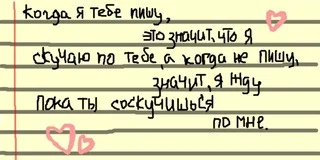 когда я тебе пишу,
это значит, что я
скучаю по тебе, а когда не пишу,
значит, я жду
пока ты соскучишься
по мне.